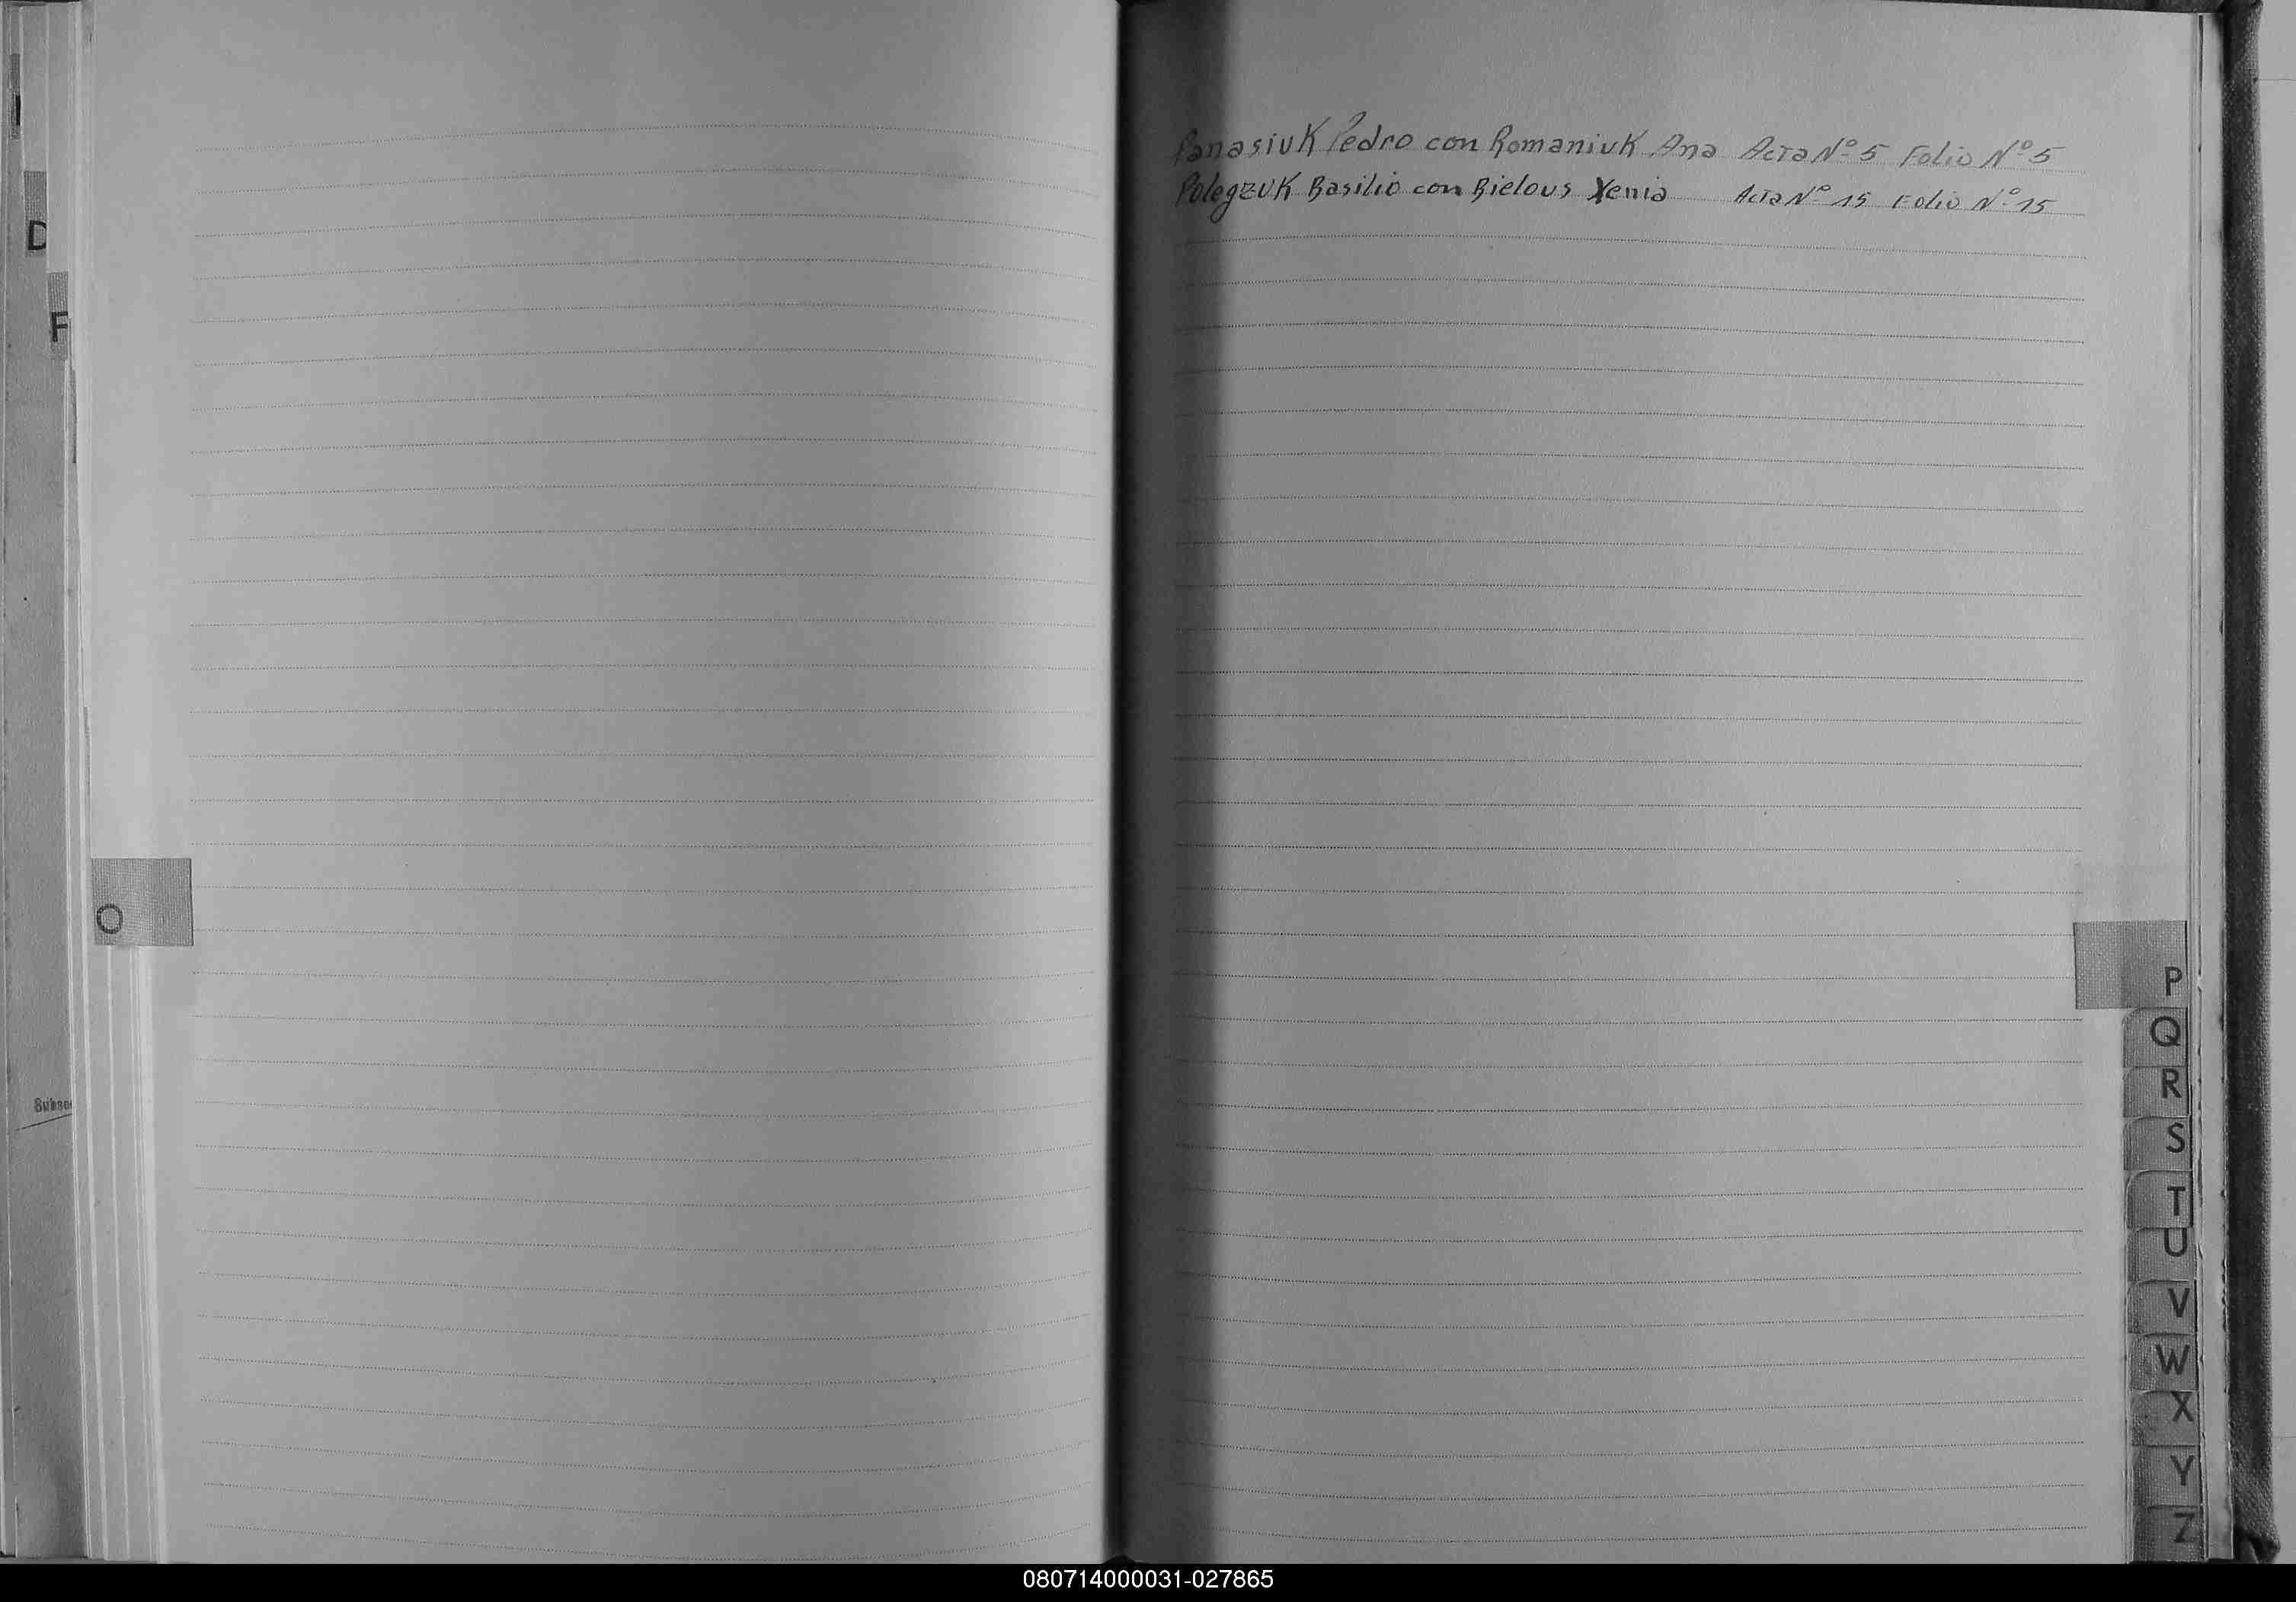 Panasiuk Pedro con Romaniuk Ana Acta Nº 5 Folio Nº 5
Polegzuk Basilio con Bielous Xenia Acta Nº 15 Folio Nº 15
D
F
O
P
Q
R
S
T
U
V
W
X
Y
Z
080714000031-027865